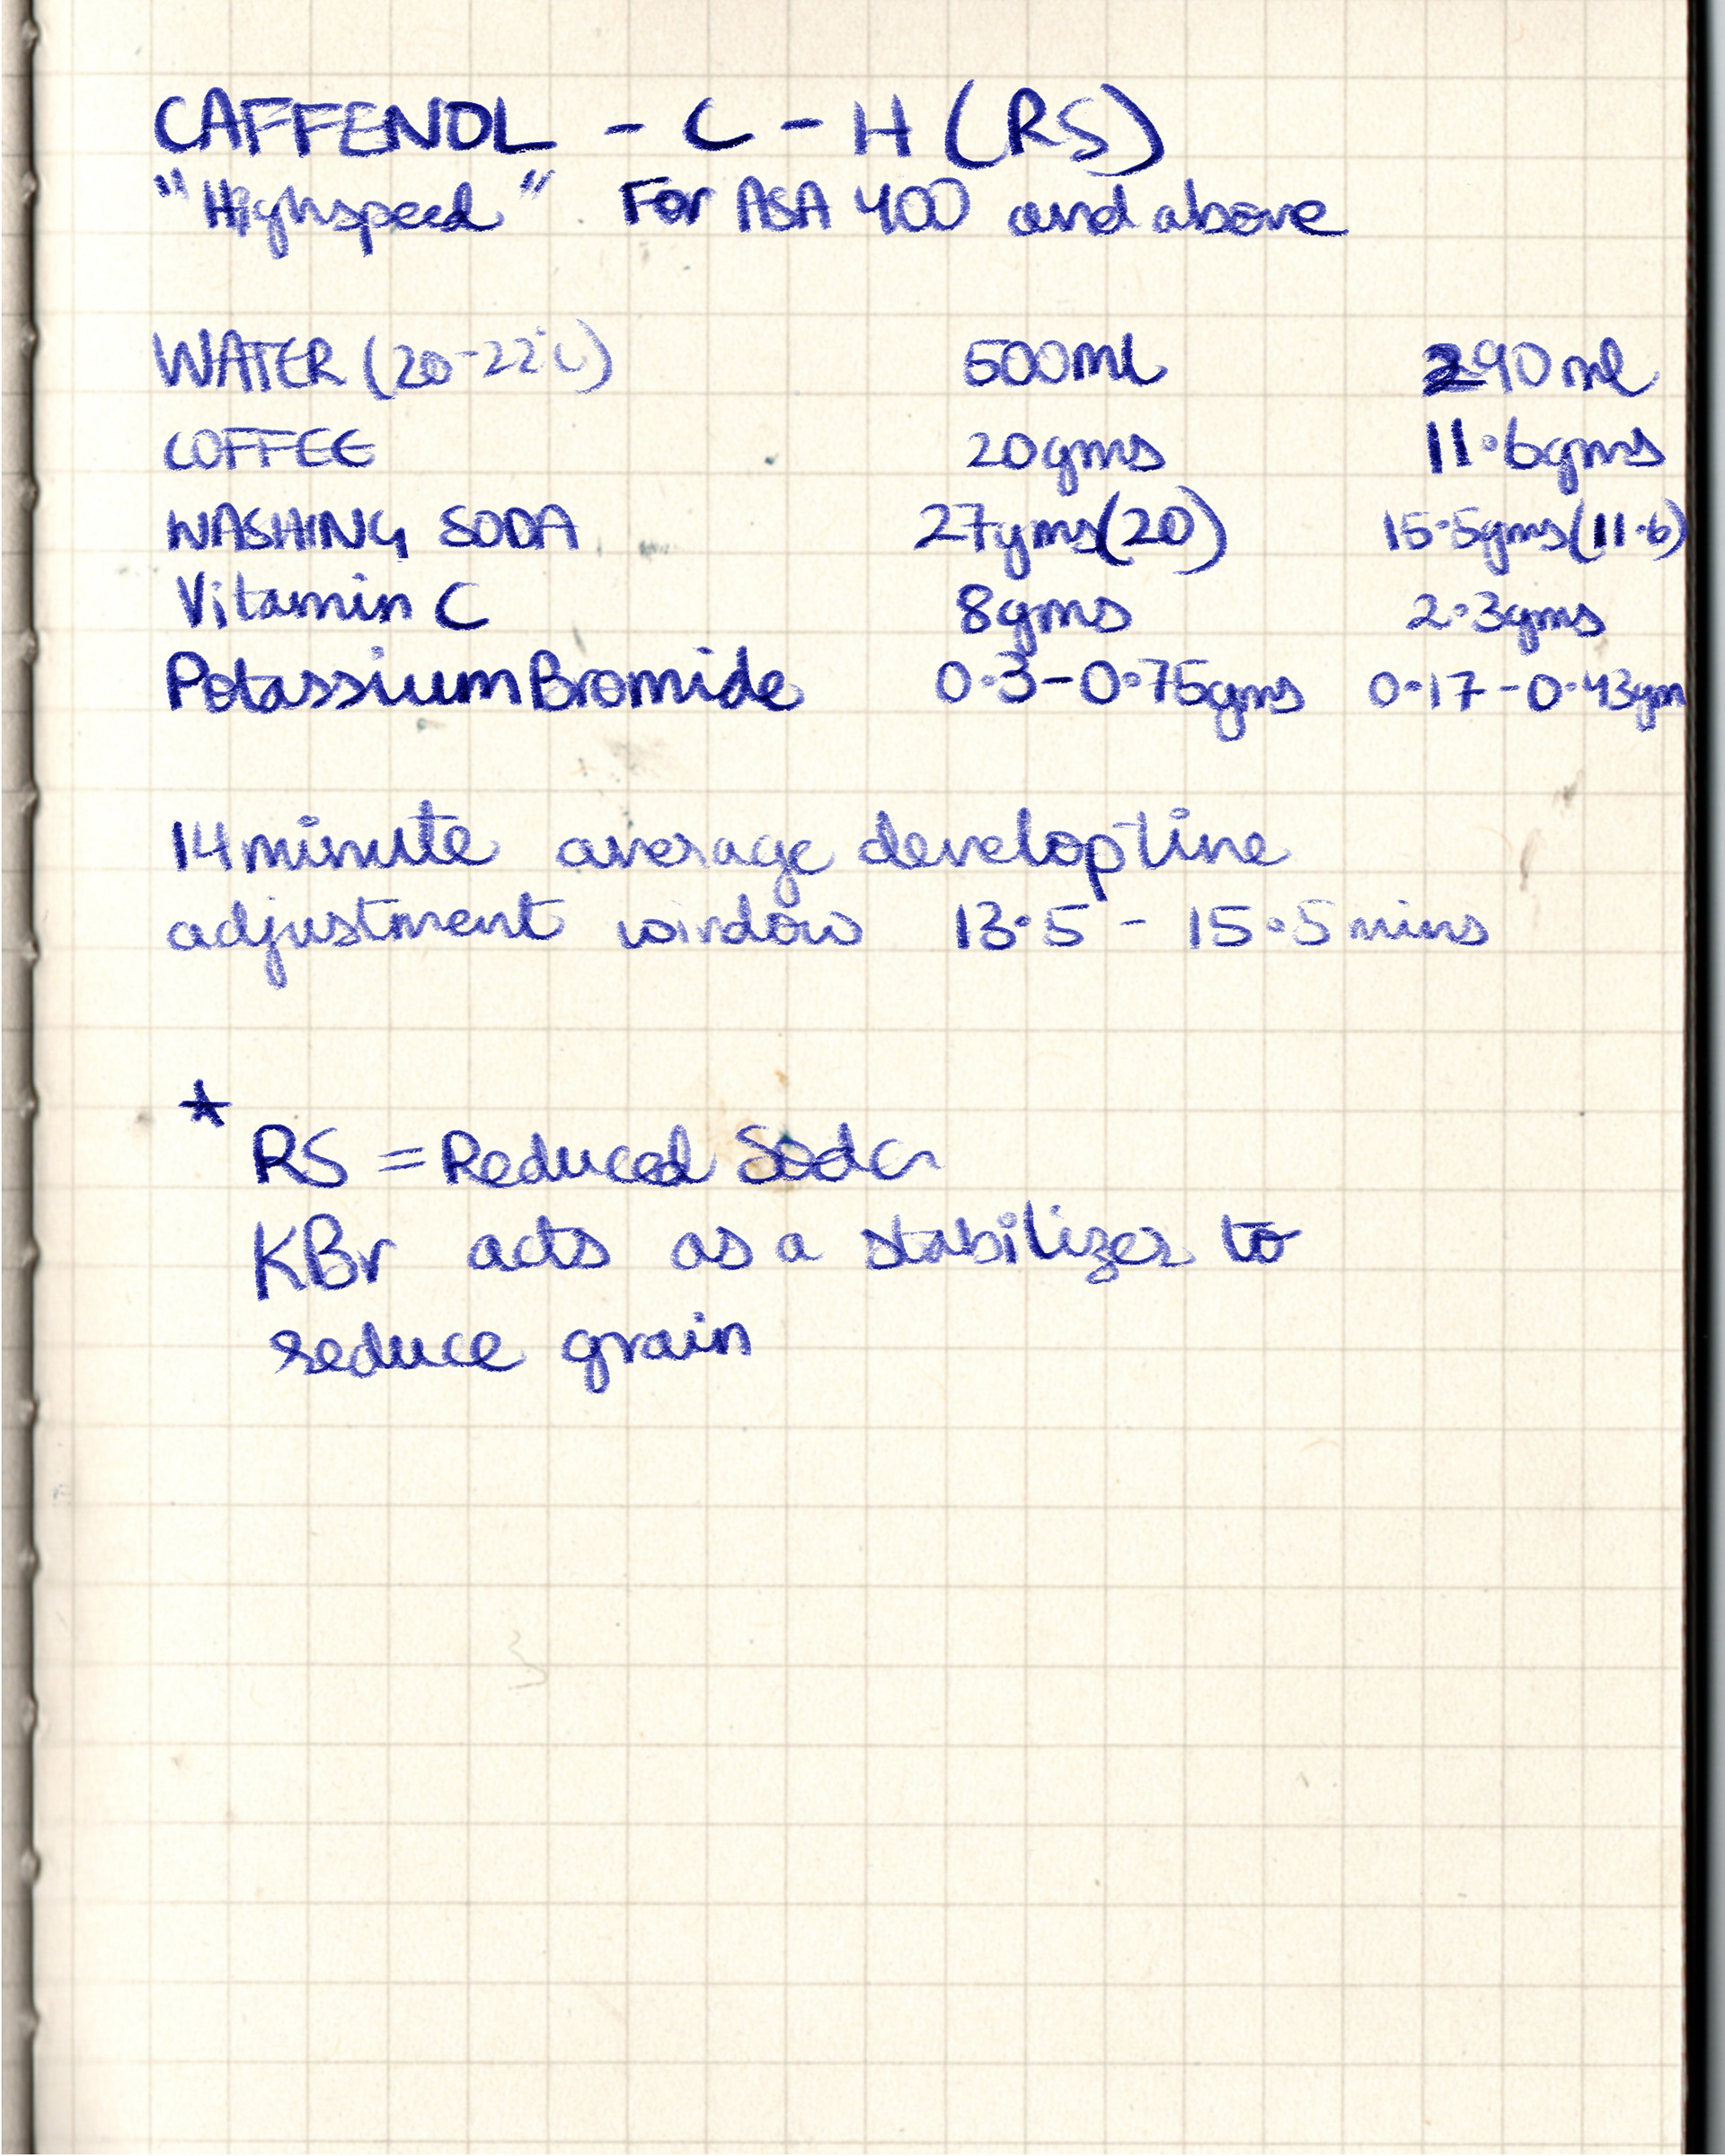 CAFFENOL - C - H (RS)
"Highspeed" For ASA 400 and above
WATER (20-22°C) 500ml 290ml
COFFEE 20gms 11.6gms
WASHING SODA 27gms(20) 15.5gms(11.6)
Vitamin C 8gms 2.3gms
Potassium Bromide 0.3-0.75gms 0.17-0.43gm
14 minute average develop time
adjustment window 13.5 - 15.5 mins
*
RS = Reduced Soda
KBr acts as a stabilizer to
reduce grain